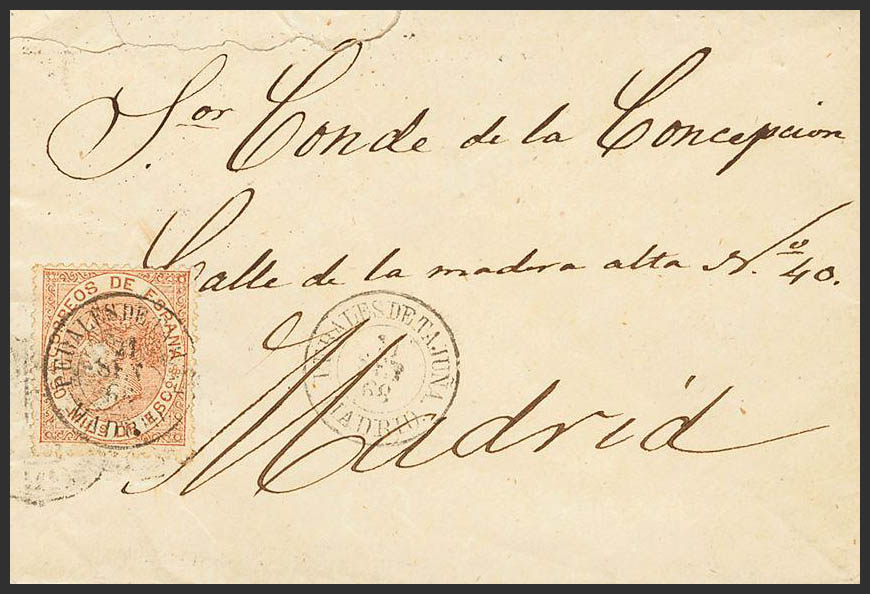 Sor Conde de la Concepcion
Calle de la madera alta No 40.
Madrid
CORREOS DE ESPAÑA
PERALES DE
21
SET
PERALES DE TAJUÑA
MADRID